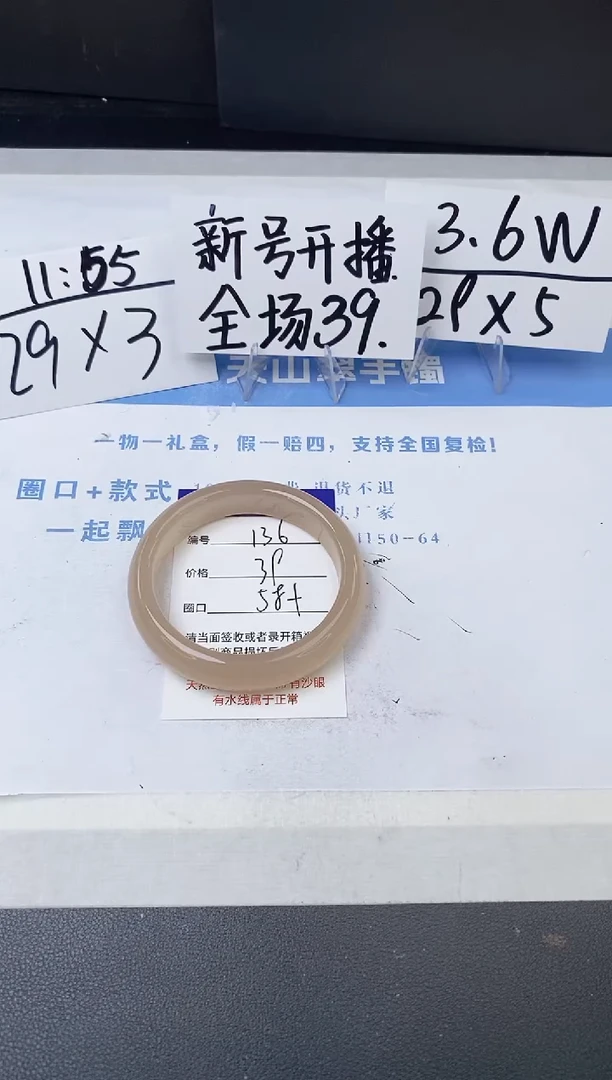 11:55
29×3
新号开播
全场39.
3.6W
29×5
天山翠手镯
一物一礼盒，假一赔四，支持全国复检！
圈口+款式
退货不退
一起飘
厂家
1150-64
编号 136
价格 39
圈口 58+
请当面签收或者录开箱
有沙眼
有水线属于正常